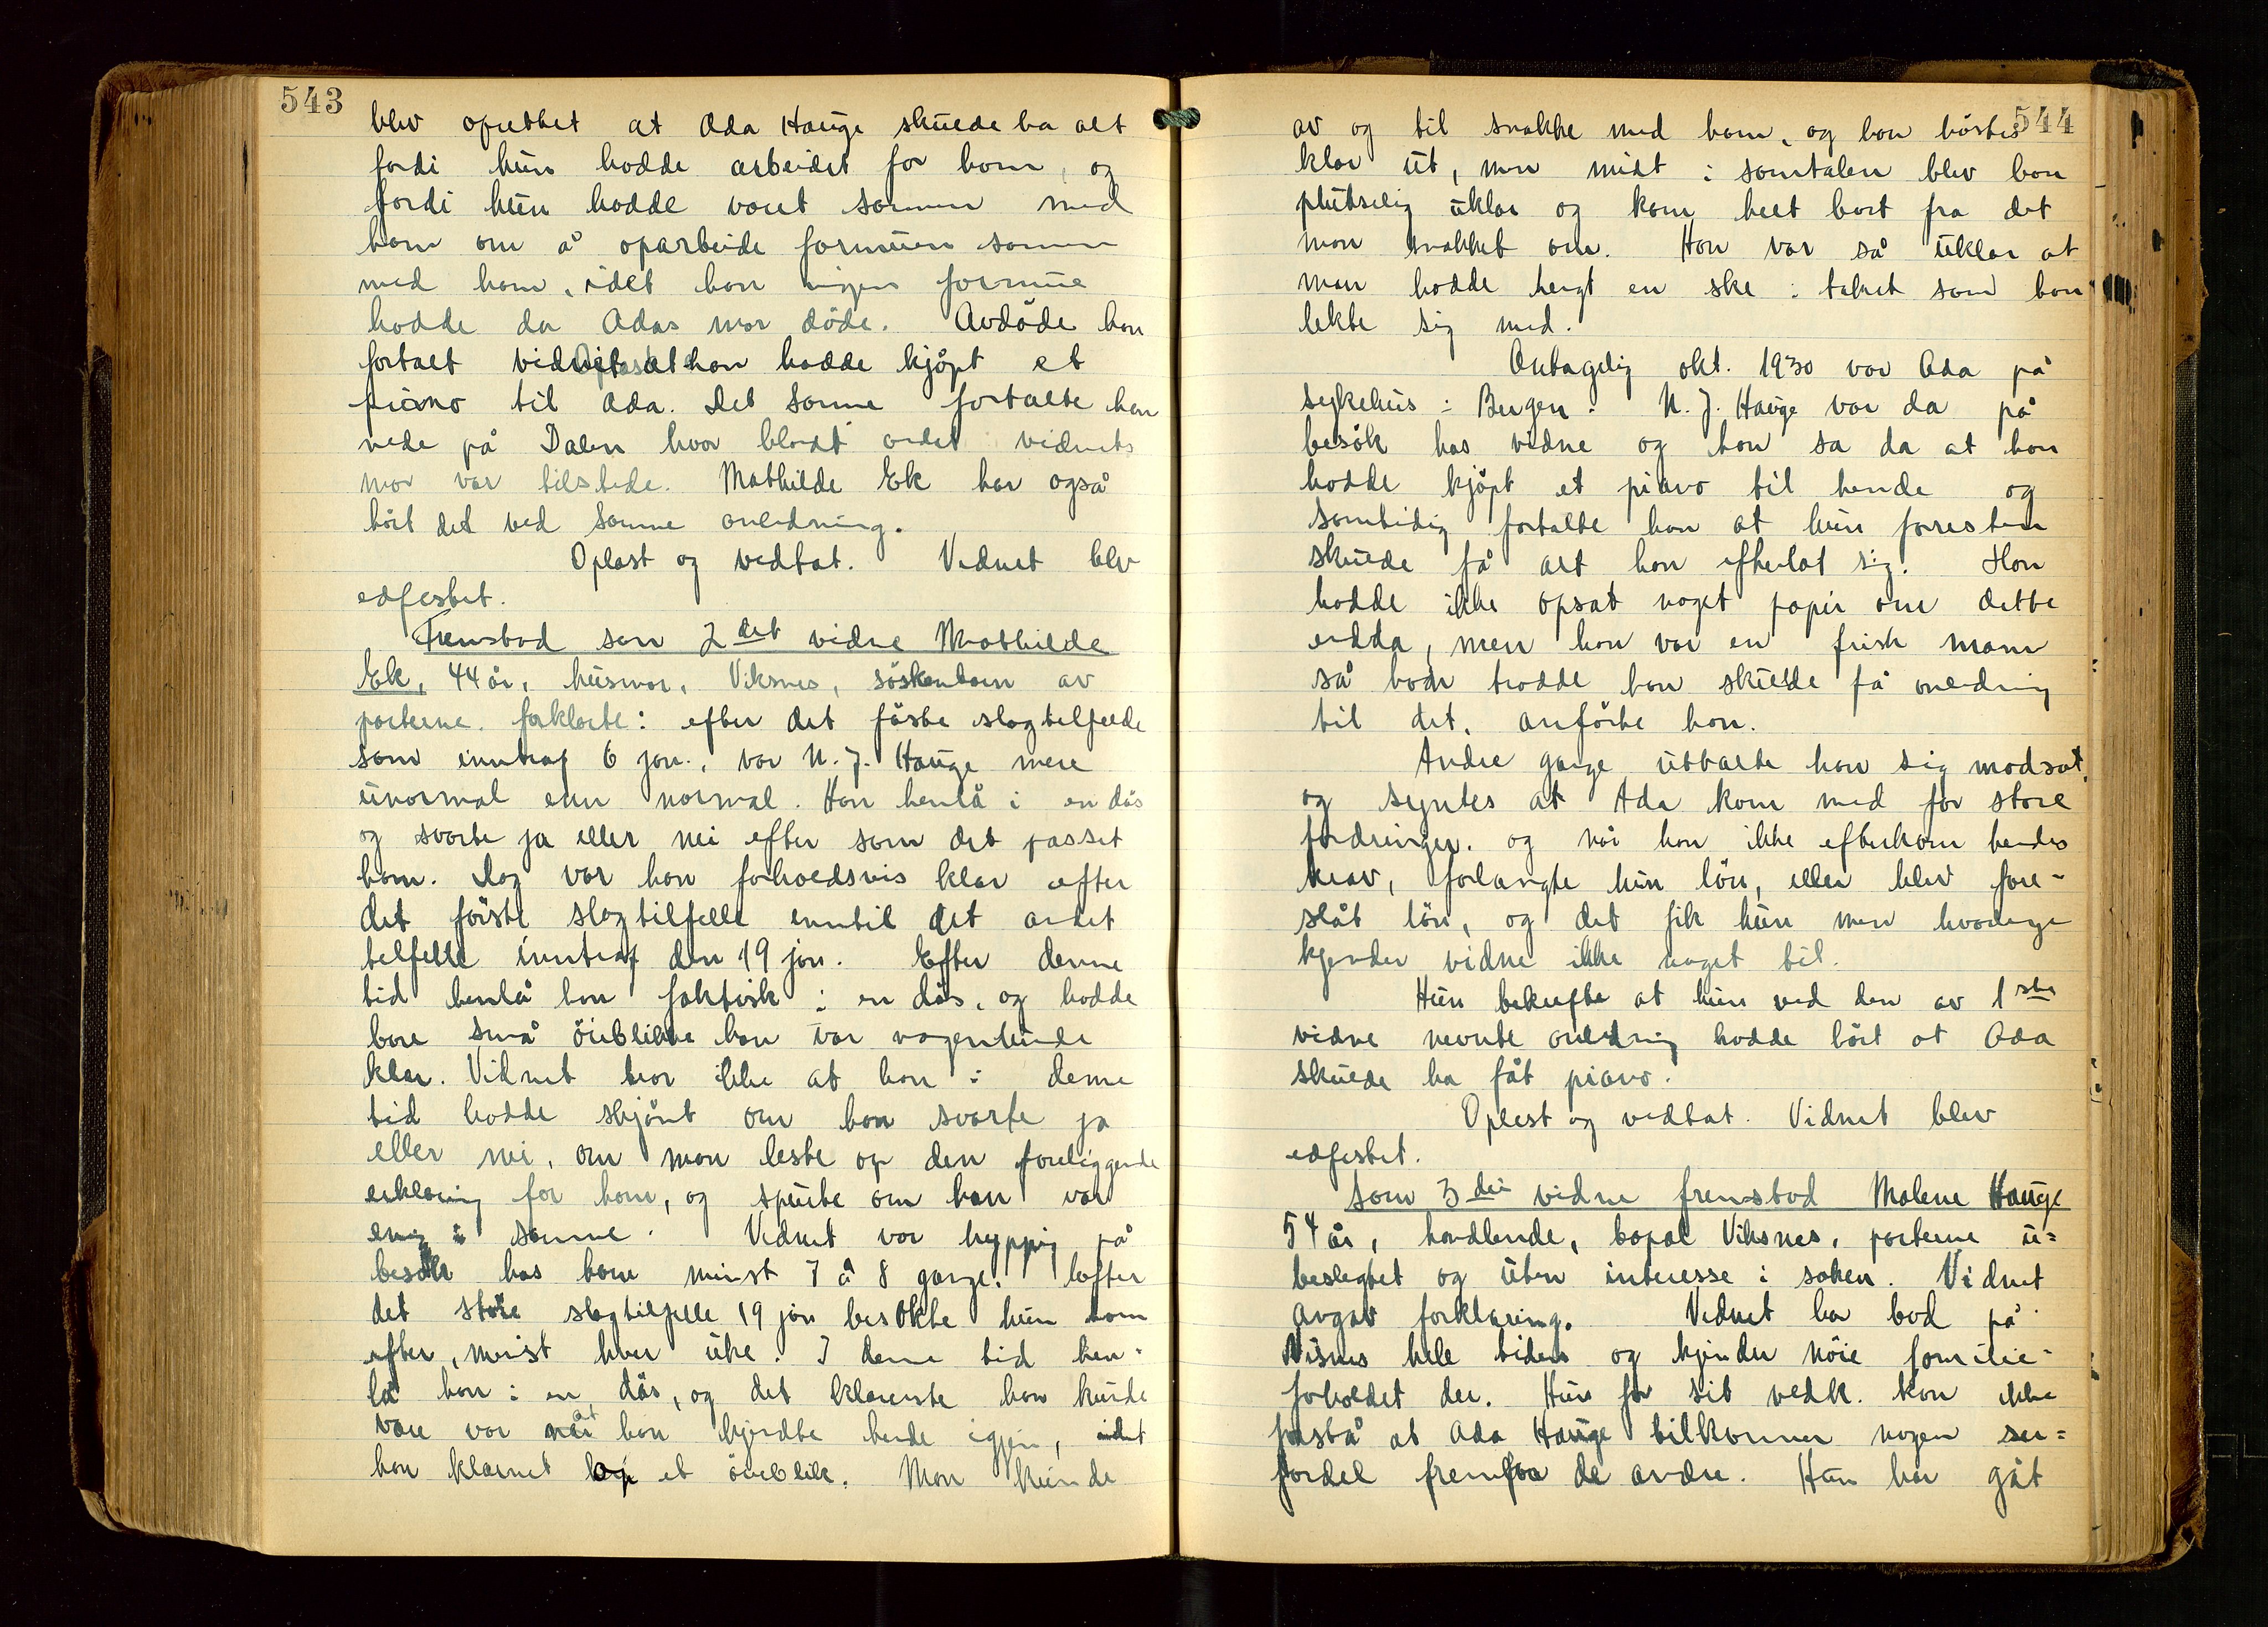 543
blev oprettet at Ada Hauge skulde ha alt
fordi hun hadde arbeidet for ham, og
fordi hun hadde været sammen med
ham om å oparbeide formuen sammen
med ham, idet han ingen formue
hadde da Adas mor døde. Avdøde har
fortalt vidnet at han hadde kjöpt et
piano til Ada. Det samme fortalte han
nede på Dalen hvor blandt andet vidnets
mor var tilstede. Mathilde Ek har også
hört det ved samme anledning.
Oplæst og vedtat. Vidnet blev
edfestet.
Fremstod som 2det vidne Mathilde
Ek, 44 år, husmor, Viksnes, söskenbarn av
parterne. forklarte: efter det förste slagtilfelde
som inntraf 6 jan., var N. J. Hauge mere
unormal enn normal. Han henlå i en dös
og svarte ja eller nei efter som det passet
ham. Dog var han forholdsvis klar efter
det förste slagtilfelle inntil det andet
tilfelle inntraf den 19 jan. Efter denne
tid henlå han faktisk i en dös, og hadde
bare små öieblikke han var nogenlunde
klar. Vidnet tror ikke at han i denne
tid hadde skjönt om han svarte ja
eller nei, om man leste op den foreliggende
erklæring for ham, og spurte om han var
enig i samme. Vidnet var hyppig på
besök hos ham minst 7 à 8 gange. Efter
det store slagtilfelle 19 jan besökte hun ham
efter, minst hver uke. I denne tid hen-
lå han i en dös, og det klareste han kunde
være var når at han kjendte hende igjen, idet
han klarnet op et öieblik. Man kunde
544
av og til snakke med ham, og han hörtes
klar ut, men midt i samtalen blev han
plutselig uklar og kom helt bort fra det
man snakket om. Han var så uklar at
man hadde hengt en ske i taket som han
lekte sig med.
Antagelig okt. 1930 var Ada på
sykehus i Bergen. N. J. Hauge var da på
besök hos vidne og han sa da at han
hadde kjöpt et piano til hende og
samtidig fortalte han at hun forresten
skulde få alt han efterlot sig. Han
hadde ikke opsat noget papir om dette
endda, men han var en frisk mann
så han trodde han skulde få anledning
til det, anförte han.
Andre gange uttalte han sig modsat,
og syntes at Ada kom med for store
fordringer. og når han ikke efterkom hendes
krav, forlangte hun lön, eller blev fore-
slåt lön, og det fik hun men hvorlænge
kjender vidne ikke noget til.
Hun bekrefter at hun ved den av 1ste
vidne nevnte anledning hadde hört at Ada
skulde ha fåt piano.
Oplest og vedtat. Vidnet blev
edfestet.
Som 3die vidne fremstod Malene Hauge
54 år, handlende, bopæl Viksnes, parterne u=
beslegtet og uten interesse i saken. Vidnet
avgav forklaring. Vidnet har bod på
Visnes hele tiden og kjender nöie familie-
forholdet der. Hun for sit vedk. kan ikke
påstå at Ada Hauge tilkommer nogen sær=
fordel fremfor de andre. Hun har gåt